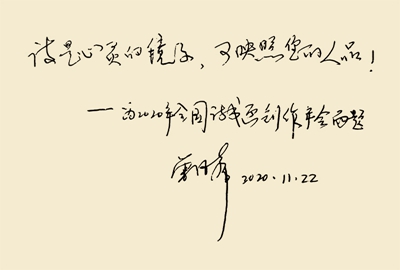 诗是心灵的镜子，可映照您的人品！
——为2020年全国诗书画创作年会而题
2020.11.22